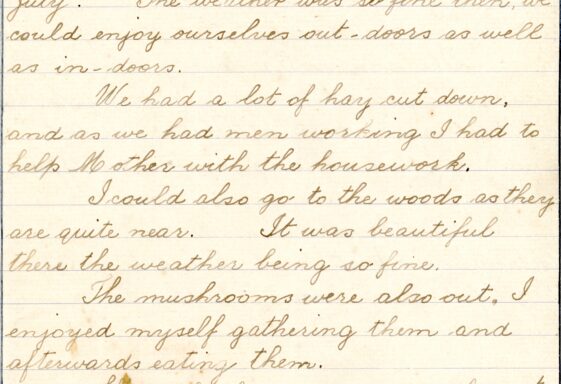 July. The weather was so fine then, we
could enjoy ourselves out-doors as well
as in-doors.
We had a lot of hay cut down,
and as we had men working I had to
help Mother with the housework.
I could also go to the woods as they
are quite near. It was beautiful
there the weather being so fine.
The mushrooms were also out. I
enjoyed myself gathering them and
afterwards eating them.